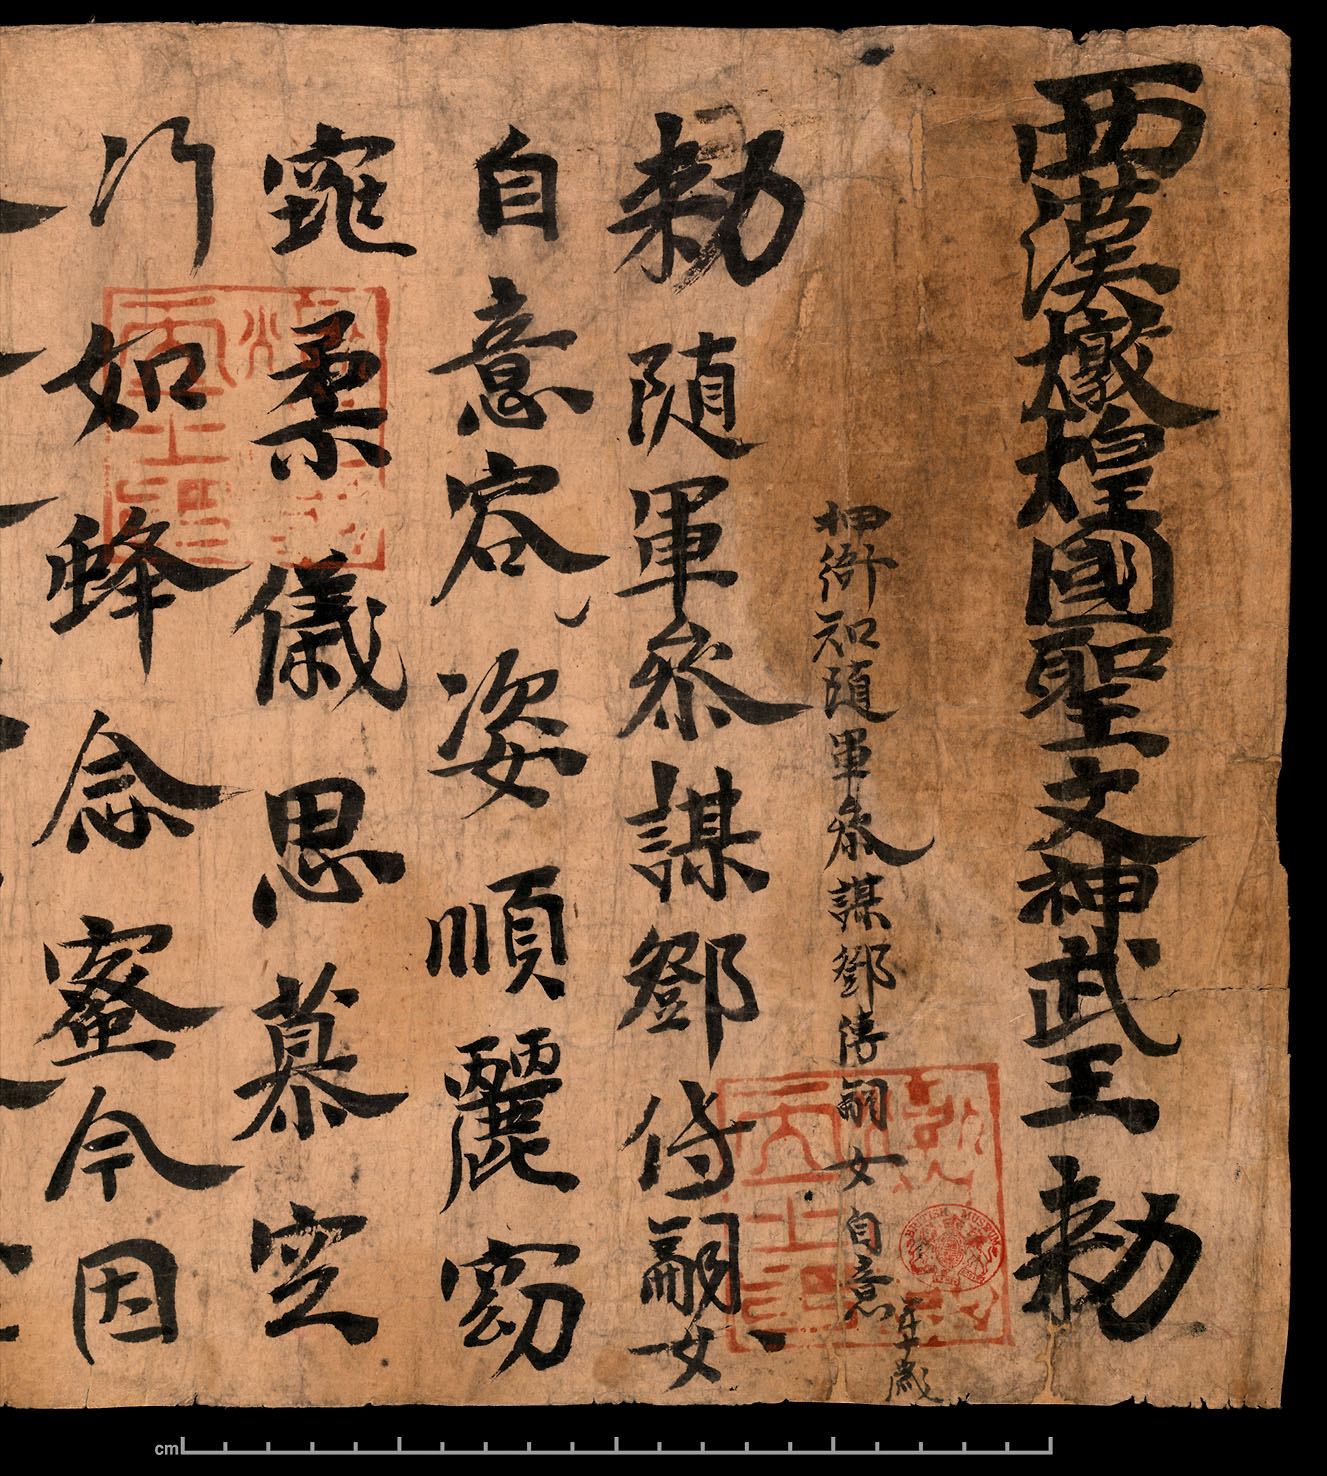 西漢燉煌國聖文神武王勅
押衙知隨軍叅謀鄧傳嗣女自意年十歲
勅隨軍叅謀鄧傳嗣女
自意容姿順麗窈
窕柔儀思慕空
門如蜂念蜜今因
BRITISH MUSEUM
cm